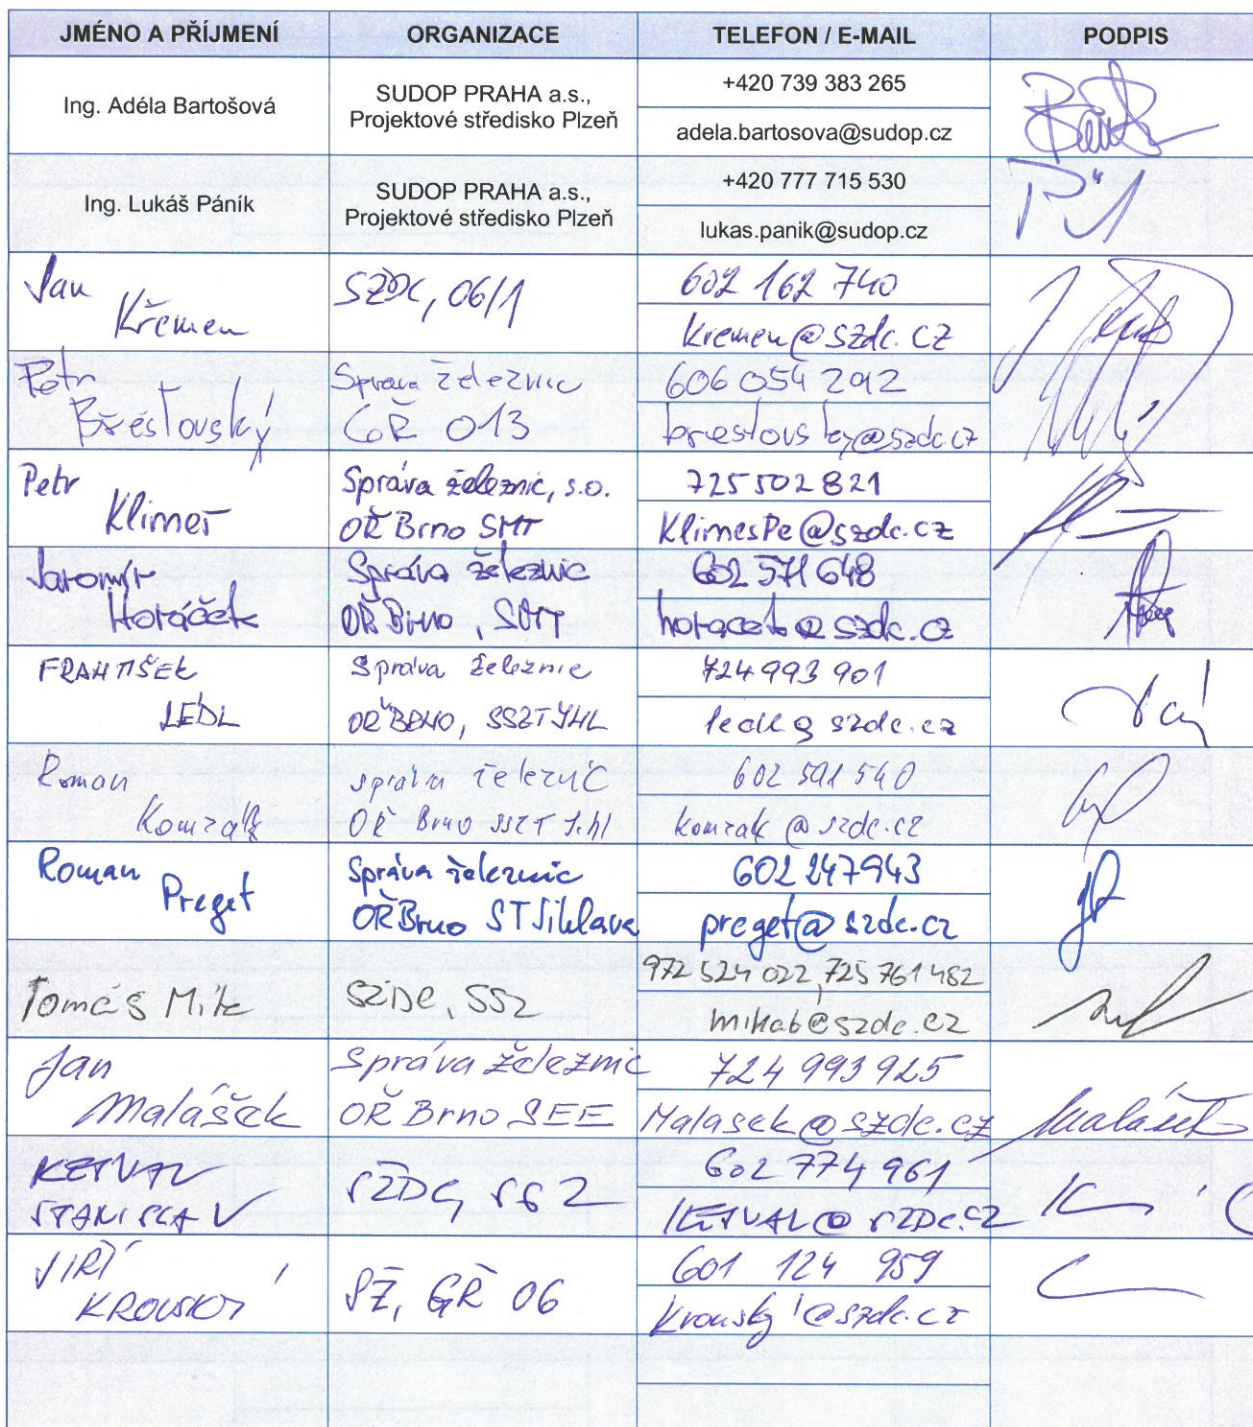 JMÉNO A PŘÍJMENÍ ORGANIZACE TELEFON / E-MAIL PODPIS
Ing. Adéla Bartošová
SUDOP PRAHA a.s.,
Projektové středisko Plzeň
+420 739 383 265
adela.bartosova@sudop.cz
Ing. Lukáš Páník
SUDOP PRAHA a.s.,
Projektové středisko Plzeň
+420 777 715 530
lukas.panik@sudop.cz
Jan
Křemen
SŽDC, 06/1
602 162 740
kremen@szdc.cz
Petr
Břesťovský
Správa železnic
GŘ 013
606 054 292
brestovsky@szdc.cz
Petr
Klimeš
Správa železnic, s.o.
OŘ Brno SMT
725 502 821
KlimesPe@szdc.cz
Jaromír
Horáček
Správa železnic
OŘ Brno, SMT
602 571 648
horacek@szdc.cz
FRANTIŠEK
LÉDL
Správa železnic
OŘ BRNO, SSZT JHL
724 993 901
ledl@szdc.cz
Roman
Konzal
správa železnic
OŘ Brno SSZT Jihl
602 591 540
konzak@szdc.cz
Roman
Preget
Správa železnic
OŘ Brno ST Jihlava
602 247943
preget@szdc.cz
Tomáš Mik
SŽDC, SSZ
972 524 022, 725 761 482
mikab@szdc.cz
Jan
Malášek
Správa železnic
OŘ Brno SEE
724 993 925
Malasek@szdc.cz
Malášek
STANISLAV
SŽDC, SSZ
602 774 961
KETVAL@SZDC.CZ
JIŘÍ
KROUSKÝ
SŽ, GŘ 06
601 124 959
krousky@szdc.cz